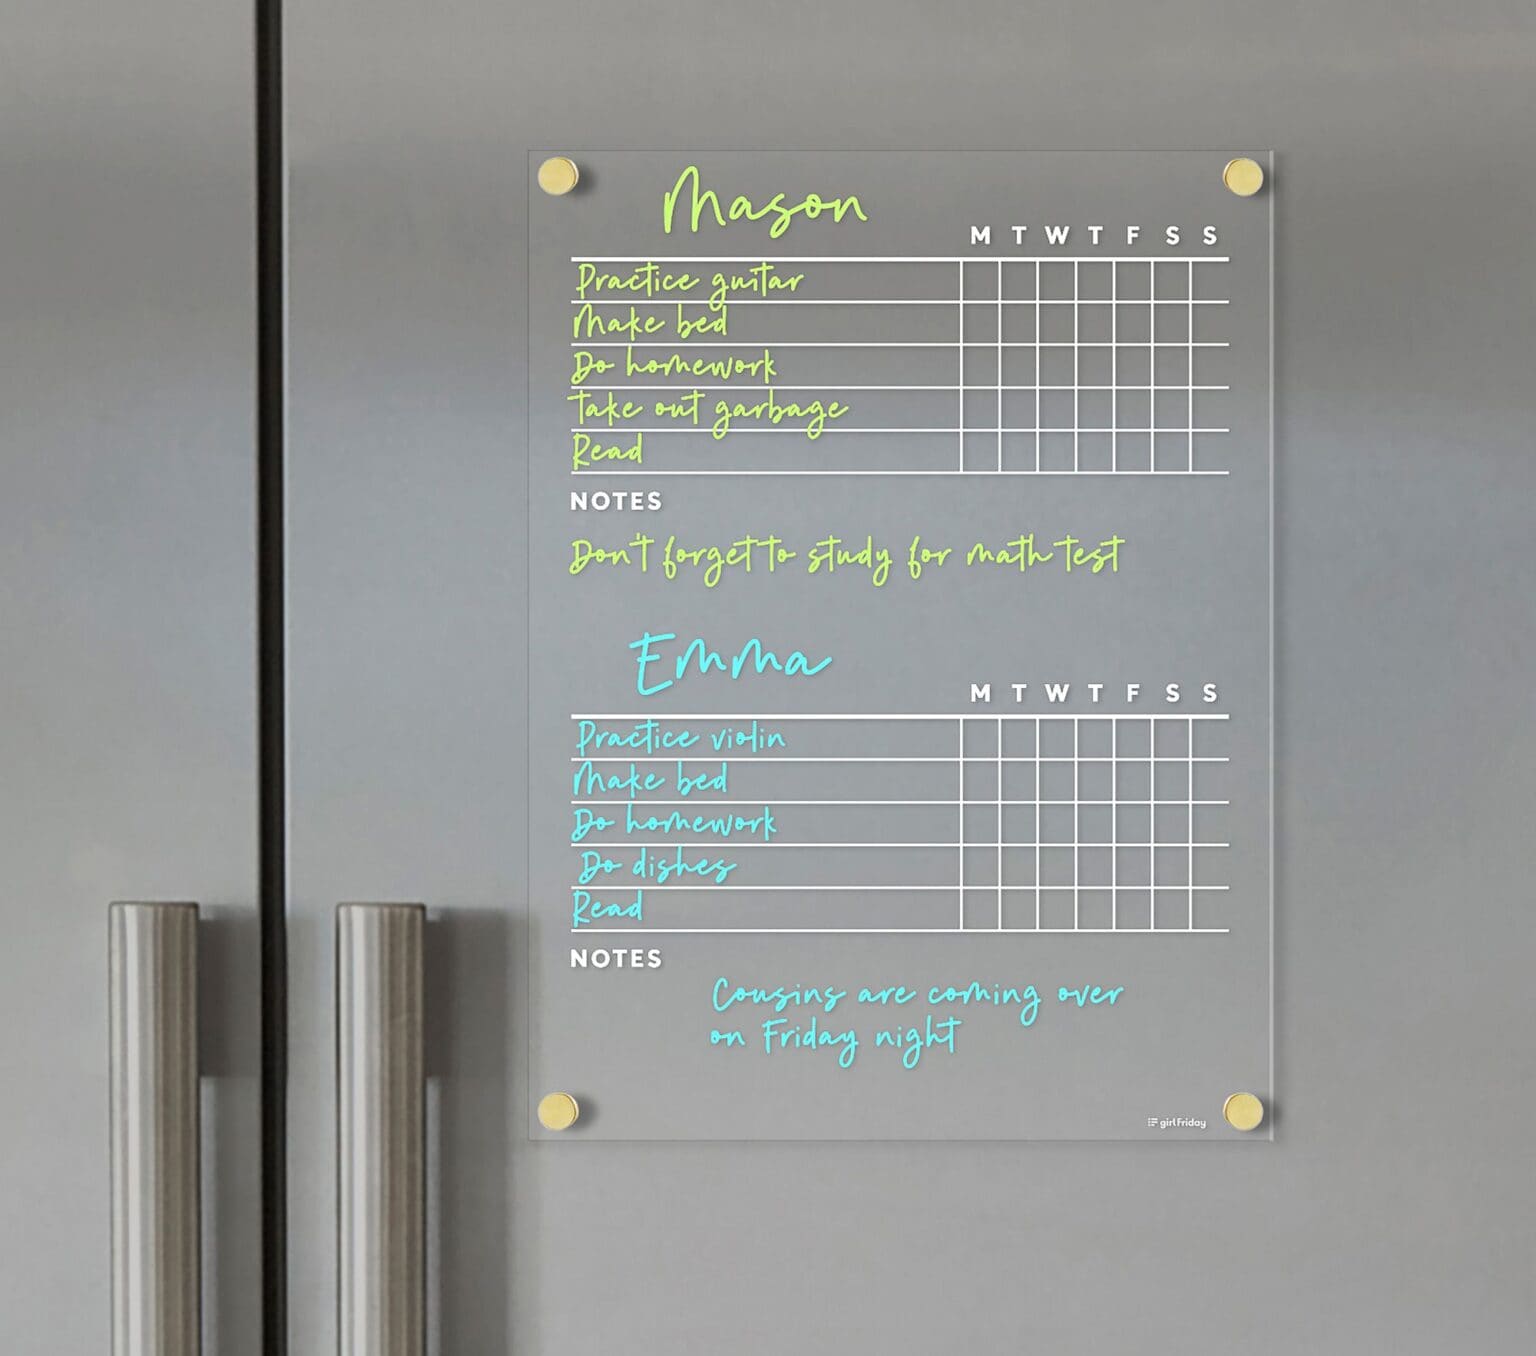 Mason
M T W T F S S
Practice guitar
Make bed
Do homework
Take out garbage
Read
NOTES
Don't forget to study for math test
Emma
M T W T F S S
Practice violin
Make bed
Do homework
Do dishes
Read
NOTES
Cousins are coming over
on Friday night
girl Friday